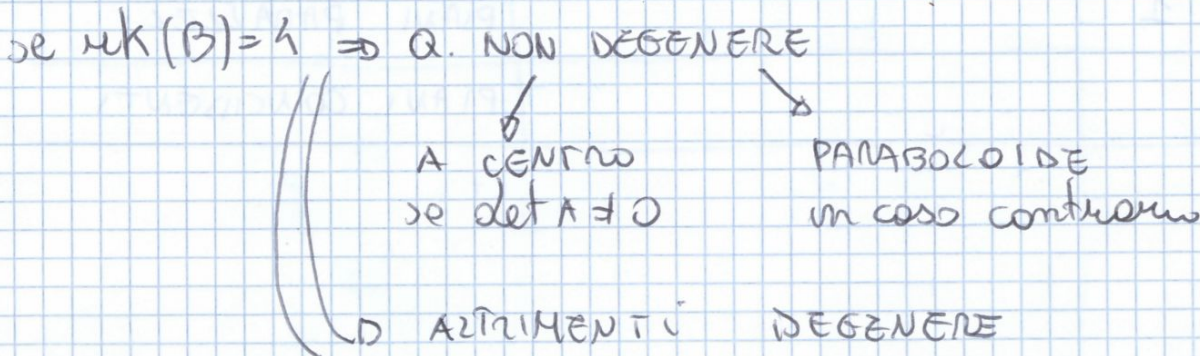 se rk(B)=4 => Q. NON DEGENERE
A CENTRO PARABOLOIDE
se det A ≠ 0 in caso contrario
ALTRIMENTI DEGENERE